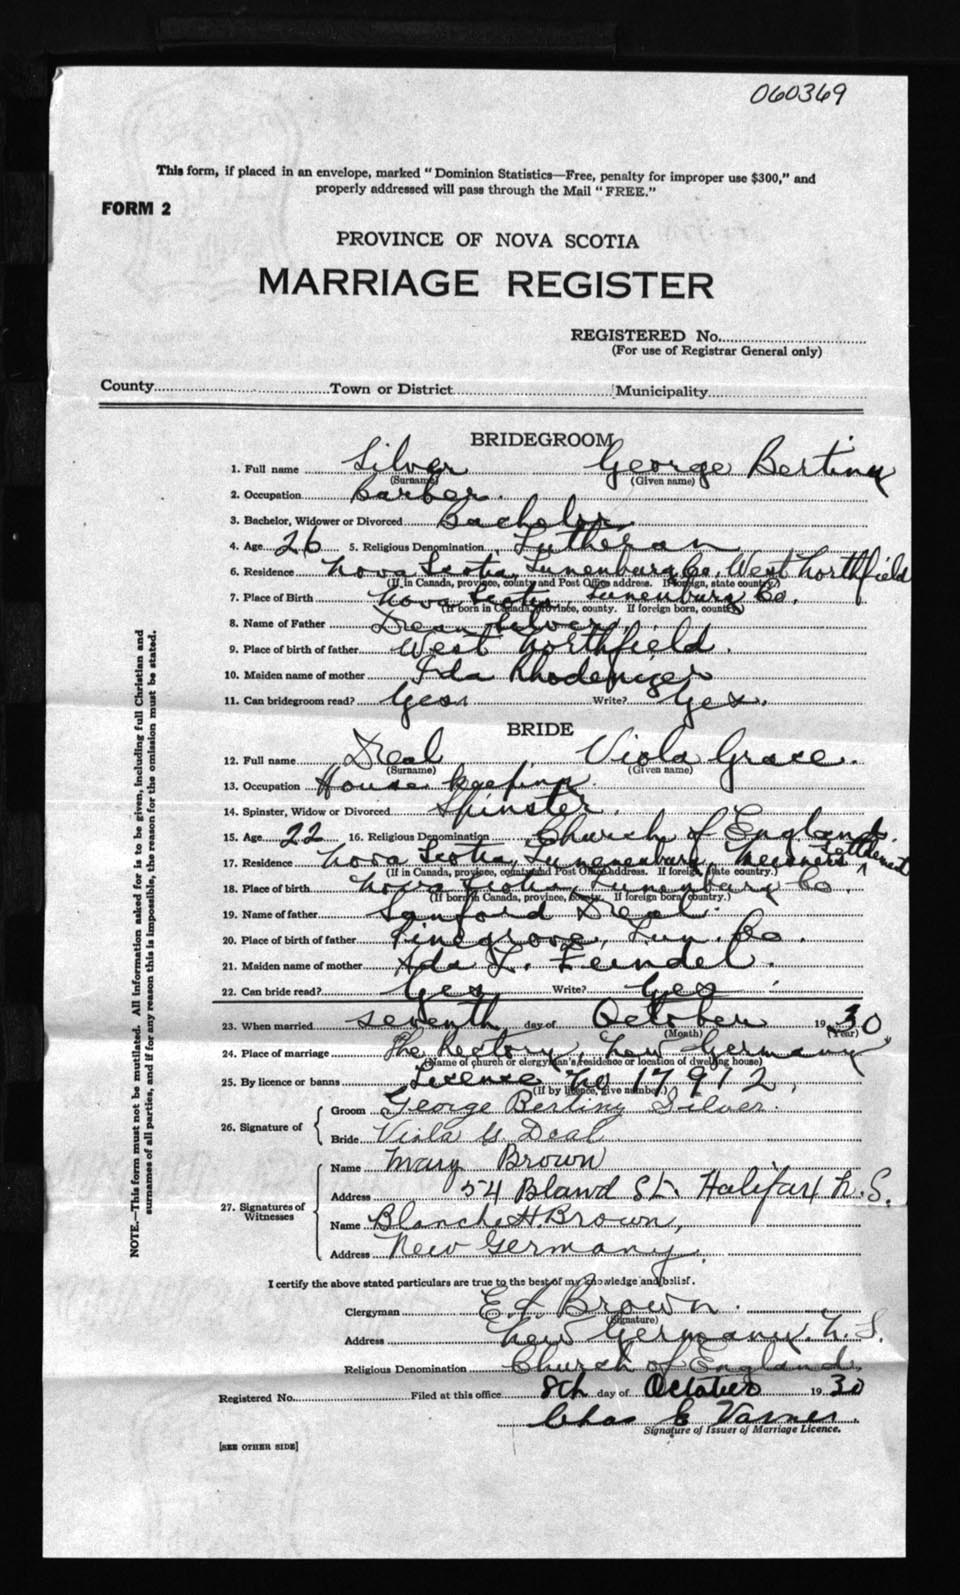 060369
This form, if placed in an envelope, marked "Dominion Statistics—Free, penalty for improper use $300," and
properly addressed will pass through the Mail "FREE."
FORM 2
PROVINCE OF NOVA SCOTIA
MARRIAGE REGISTER
REGISTERED No.
(For use of Registrar General only)
County Town or District Municipality
BRIDEGROOM
1. Full name Silver George Bertiny
(Surname) (Given name)
2. Occupation Barber.
3. Bachelor, Widower or Divorced Bachelor
4. Age 26 5. Religious Denomination Lutheran
6. Residence Nova Scotia, Lunenburg Co. West Northfield
(If in Canada, province, county and Post Office address. If foreign, state country.)
7. Place of Birth Nova Scotia, Lunenburg Co.
(If born in Canada, province, county. If foreign born, country)
8. Name of Father Dean Silver.
9. Place of birth of father West Northfield.
10. Maiden name of mother Ida Rhodenizer
11. Can bridegroom read? Yes Write? Yes.
BRIDE
12. Full name Deal Viola Grace.
(Surname) (Given name)
13. Occupation House keeping.
14. Spinster, Widow or Divorced Spinster.
15. Age 22 16. Religious Denomination Church of England.
17. Residence Nova Scotia, Lunenburg, Meisners Settlement
(If in Canada, province, county and Post Office address. If foreign, state country.)
18. Place of birth Nova Scotia, Lunenburg Co.
(If born in Canada, province, county. If foreign born, country.)
19. Name of father Sanford Deal.
20. Place of birth of father Pinegrove, Lun. Co.
21. Maiden name of mother Ada L. Feindel.
22. Can bride read? Yes Write? Yes
23. When married seventh day of October 1930
(Month) (Year)
24. Place of marriage The Rectory, New Germany
(Name of church or clergyman's residence or location of dwelling house)
25. By licence or banns Licence No 17912.
(If by licence, give number.)
26. Signature of
Groom George Bertiny Silver.
Bride Viola G Deal
27. Signatures of Witnesses
Name Mary Brown
Address 54 Bland St. Halifax N.S.
Name Blanche H. Brown,
Address New Germany.
I certify the above stated particulars are true to the best of my knowledge and belief.
Clergyman Brown.
(Signature)
Address New Germany. N.S.
Religious Denomination Church of England
Registered No. Filed at this office 8th day of October 1930
Chas E Varner.
Signature of Issuer of Marriage Licence.
[SEE OTHER SIDE]
NOTE.—This form must not be mutilated. All information asked for is to be given, including full Christian and
surnames of all parties, and if for any reason this is impossible, the reason for the omission must be stated.